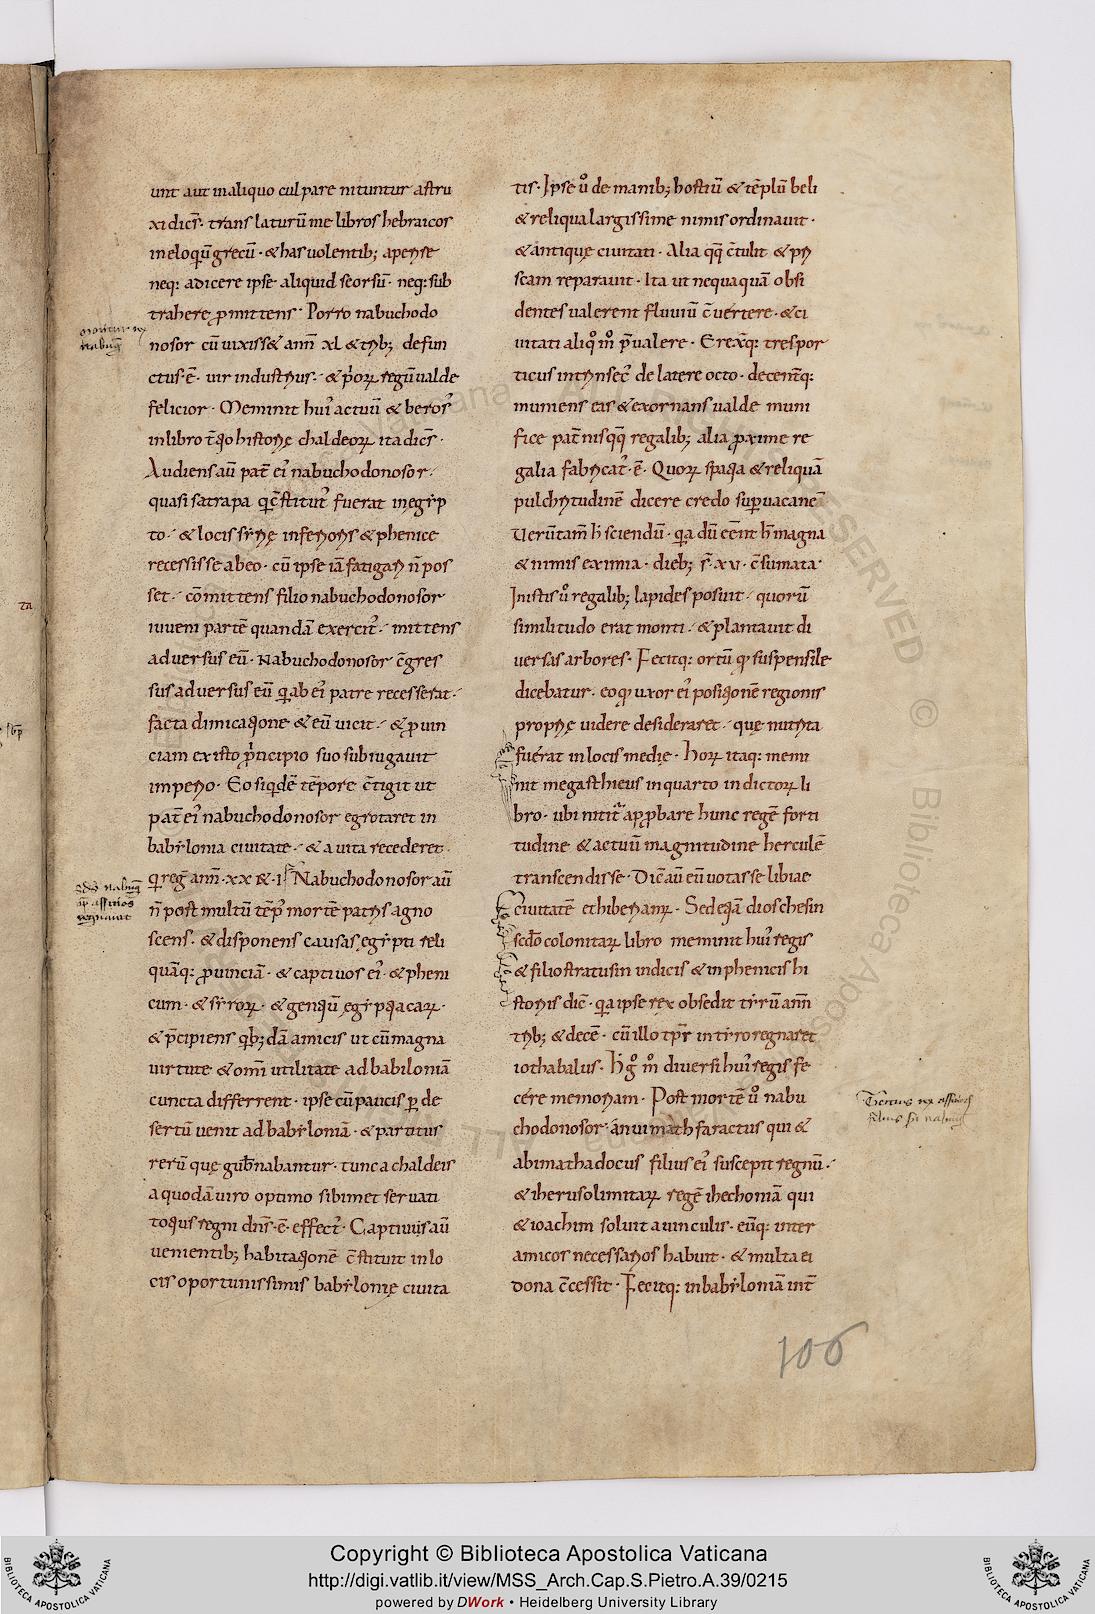 unt aut in aliquo culpare nituntur astru
xi dicēs· translaturū me libros hebraicos
in eloq̄ū grecū· & has uolentib; aperte
neq: adicere ipse aliquid seorsū· neq: sub
trahere p̄mittens· Porro nabuchodo
nosor cū uixiss& ann̄ xl & trib; defun
ctus·ē· uir industrius· & p̄orꝝ regū ualde
felicior· Meminit hui' actuū & beros'
in libro t̄tio historię chaldeorꝝ ita dicēs·
Audiens aū pat̄ ei' nabuchodonosor·
quasi satrapa q̄ c̄stitut' fuerat in egyp
to· & locis syrię inferioris & phenice
recessisse ab eo· cū ipse iā fatigari n̄ pos
set· cōmittens filio nabuchodonosor
iuueni partē quandā exercit'· mittens
aduersus eū· Nabuchodonosor c̄gres
sus aduersus eū q̄ ab ei' patre recesserat·
facta dimicatione & eū uicit· & ꝓuin
ciam ex isto p̄ncipio suo subiugauit
imperio· Eo siqdē tēpore c̄tigit ut
pat̄ ei' nabuchodonosor egrotaret in
babylonia ciuitate· & a uita recederet·
q̄ reḡ ann̄·xx & i· Nabuchodonosor aū
n̄ post multū tēp' mortē patris agno
scens· & disponens causas egypti reli
quāq: ꝓuinciā· & captiuos ei'· & pheni
cum· & syrorꝝ· & gentiū ęgyptiacarꝝ·
& p̄cipiens qb;dā amicis ut cū magna
uirtute & om̄i utilitate ad babiloniā
cuncta differrent· ipse cū paucis ꝑ de
sertū uenit ad babyloniā· & partitus
rerū quę gub̄nabantur· tunc a chaldeis
a quodā uiro optimo sibimet seruati
totius regni dn̄s·ē· effect'· Captiuis aū
uenientib; habitationē c̄stituit in lo
cis oportunissimis babylonię ciuita
tis· Ipse u° de manib; hostiū & tēplū beli
& reliqua largissime nimis ordinauit·
& antiquę ciuitati· Alia qq̄ c̄tulit & pri
scam reparauit· Ita ut nequaquā obsi
dentes ualerent fluuiū c̄uertere· & ci
uitati aliq° m° p̄ualere· Erexq: tres por
ticus intrinsec' de latere octo· decentq:
muniens eas & exornans ualde muni
fice pat̄nisqq̄ regalib; alia ꝓxime re
galia fabricat'·ē· Quorꝝ spatia & reliquā
pulchritudinē dicere credo supuacaneū
Verūtam̄ h̄ sciendū· qa dū c̄ent h̄ magna
& nimis eximia· dieb; s̄·xv· c̄sumata·
In istis u° regalib; lapides posuit· quorū
similitudo erat monti· & plantauit di
uersas arbores· Fecitq: ortū q̄ suspensile
dicebatur· eo q̄ uxor ei' positionē regionis
proprię uidere desideraret· quę nutrita
fuerat in locis medię· Horꝝ itaq: memi
nit megasthieus in quarto indictorꝝ li
bro· ubi nitit' apꝓbare hunc regē forti
tudine & actuū magnitudine herculē
transcendisse· Dic̄ aū eū uotasse libiae
ciuitatē et hiberiarꝝ· Sed etiā dioschesin
scdō colonitarꝝ libro meminit hui' regis
& filiostratus in indicis & in phenicis hi
storiis dic̄· qa ipse rex obsedit tyrū ann̄
trib; & decē· cū illo tp̄r in tyro regnaret
iothabalus· H° g° m° diuersi hui' regis fe
cére memoriam· Post mortē u° nabu
chodonosor· anuimath faractus qui &
abimathadocus filius ei' suscepit regnū·
& iherusolimitarꝝ regē ihechoniā qui
& ioachim soluit a uinculis· eūq: inter
amicos necessarios habuit· & multa ei
dona c̄cessit· Fecitq: in babyloniā int̄
moritur rex
nabuq̄
Tertius rex assirioꝯ
filius
106
Copyright © Biblioteca Apostolica Vaticana
http://digi.vatlib.it/view/MSS_Arch.Cap.S.Pietro.A.39/0215
powered by DWork • Heidelberg University Library